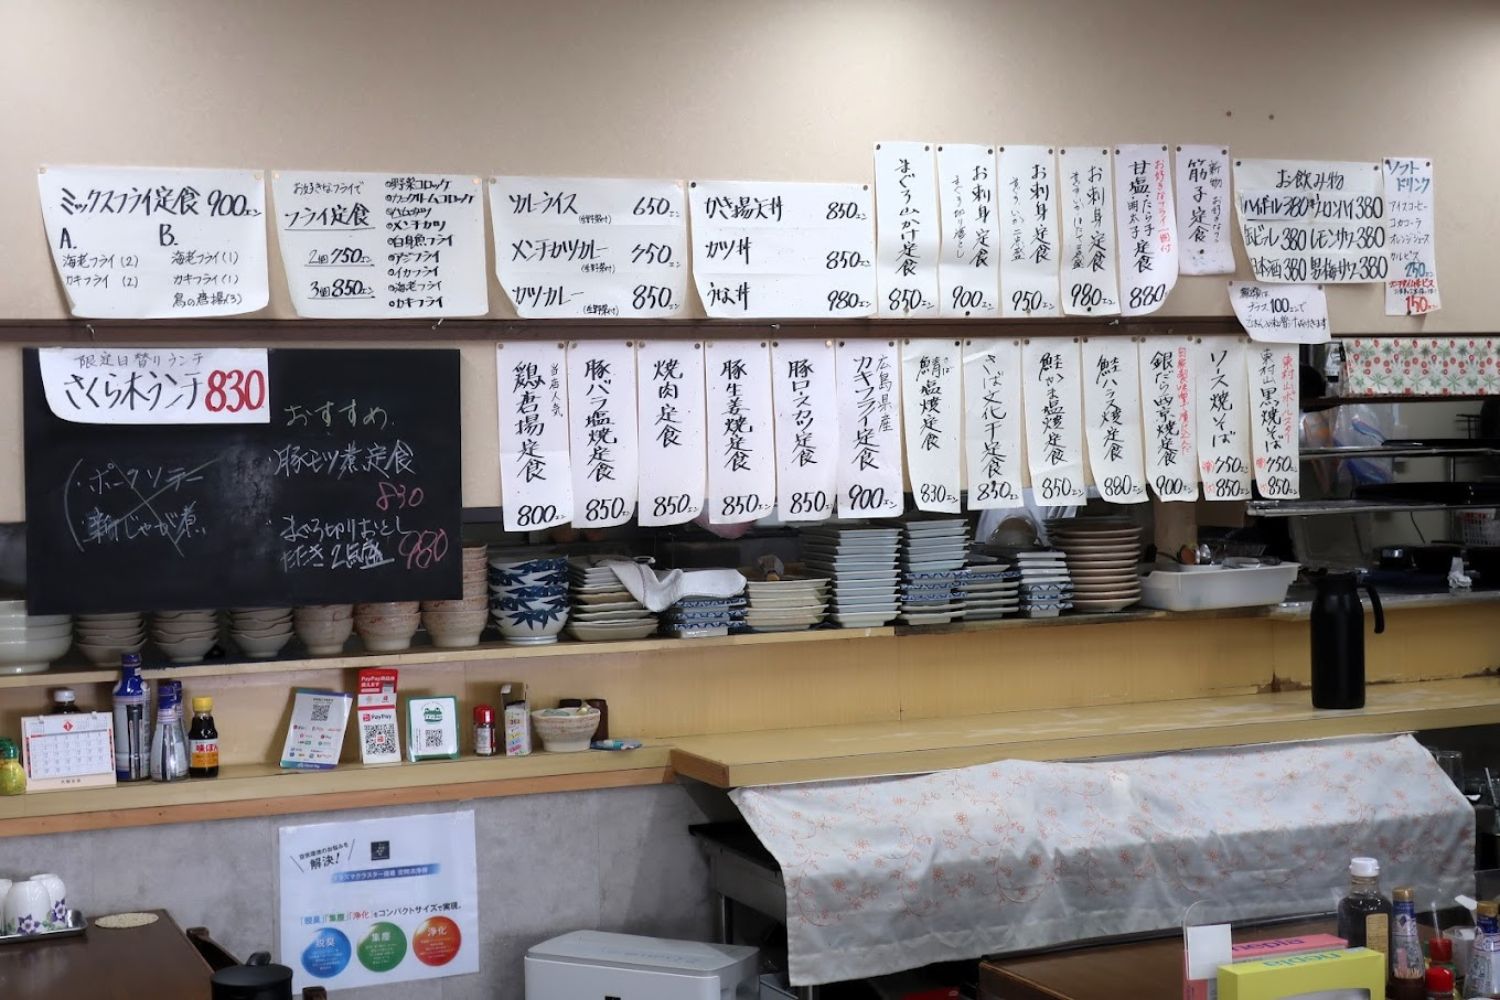 ミックスフライ定食 900エン
A.
海老フライ (2)
カキフライ (2)
B.
海老フライ (1)
カキフライ (1)
鳥の唐揚(3)
お好きなフライで
フライ定食
2個 750エン
3個 850エン
◎野菜コロッケ
◎カニクリームコロッケ
◎ハムカツ
◎メンチカツ
◎白身魚フライ
◎アジフライ
◎イカフライ
◎海老フライ
◎カキフライ
カレーライス 650エン
(生野菜付)
メンチカツカレー 750エン
(生野菜付)
カツカレー 850エン
(生野菜付)
かき揚天丼 850エン
カツ丼 850エン
うな丼 980エン
まぐろ山かけ定食 850エン
お刺身定食
まぐろ切り落とし
900エン
お刺身定食
まぐろ、いか二点盛
950エン
お刺身定食
980エン
お好きなフライ一個付
甘塩たら子定食
明太子
880エン
筋子定食
お飲み物
ハイボール 380
ウーロンハイ 380
缶ビール 380
レモンサワー 380
日本酒 380
男梅サワー 380
プラス100エンで
ソフト
ドリンク
アイスコーヒー
コカコーラ
オレンジジュース
カルピス
250エン
150エン
限定日替りランチ
さくら木ランチ 830
おすすめ
豚モツ煮定食
830
まぐろ切りおとし
2点盛 980
ポークソテー
新じゃが煮
当店人気
鶏唐揚定食
800エン
豚バラ塩焼定食
850エン
焼肉定食
850エン
豚生姜焼定食
850エン
豚ロースカツ定食
850エン
広島県産
カキフライ定食
900エン
鯖塩焼定食
830エン
さば文化干定食
850エン
鮭かま塩焼定食
850エン
鮭ハラス焼定食
880エン
銀だら西京焼定食
900エン
ソース焼そば
750エン
850エン
東村山黒焼そば
750エン
850エン
PayPay
空気環境のお悩みを
解決!
プラズマクラスター搭載 空間清浄機
「脱臭」「集塵」「浄化」をコンパクトサイズで実現。
脱臭
集塵
浄化
味ぽん
nepia